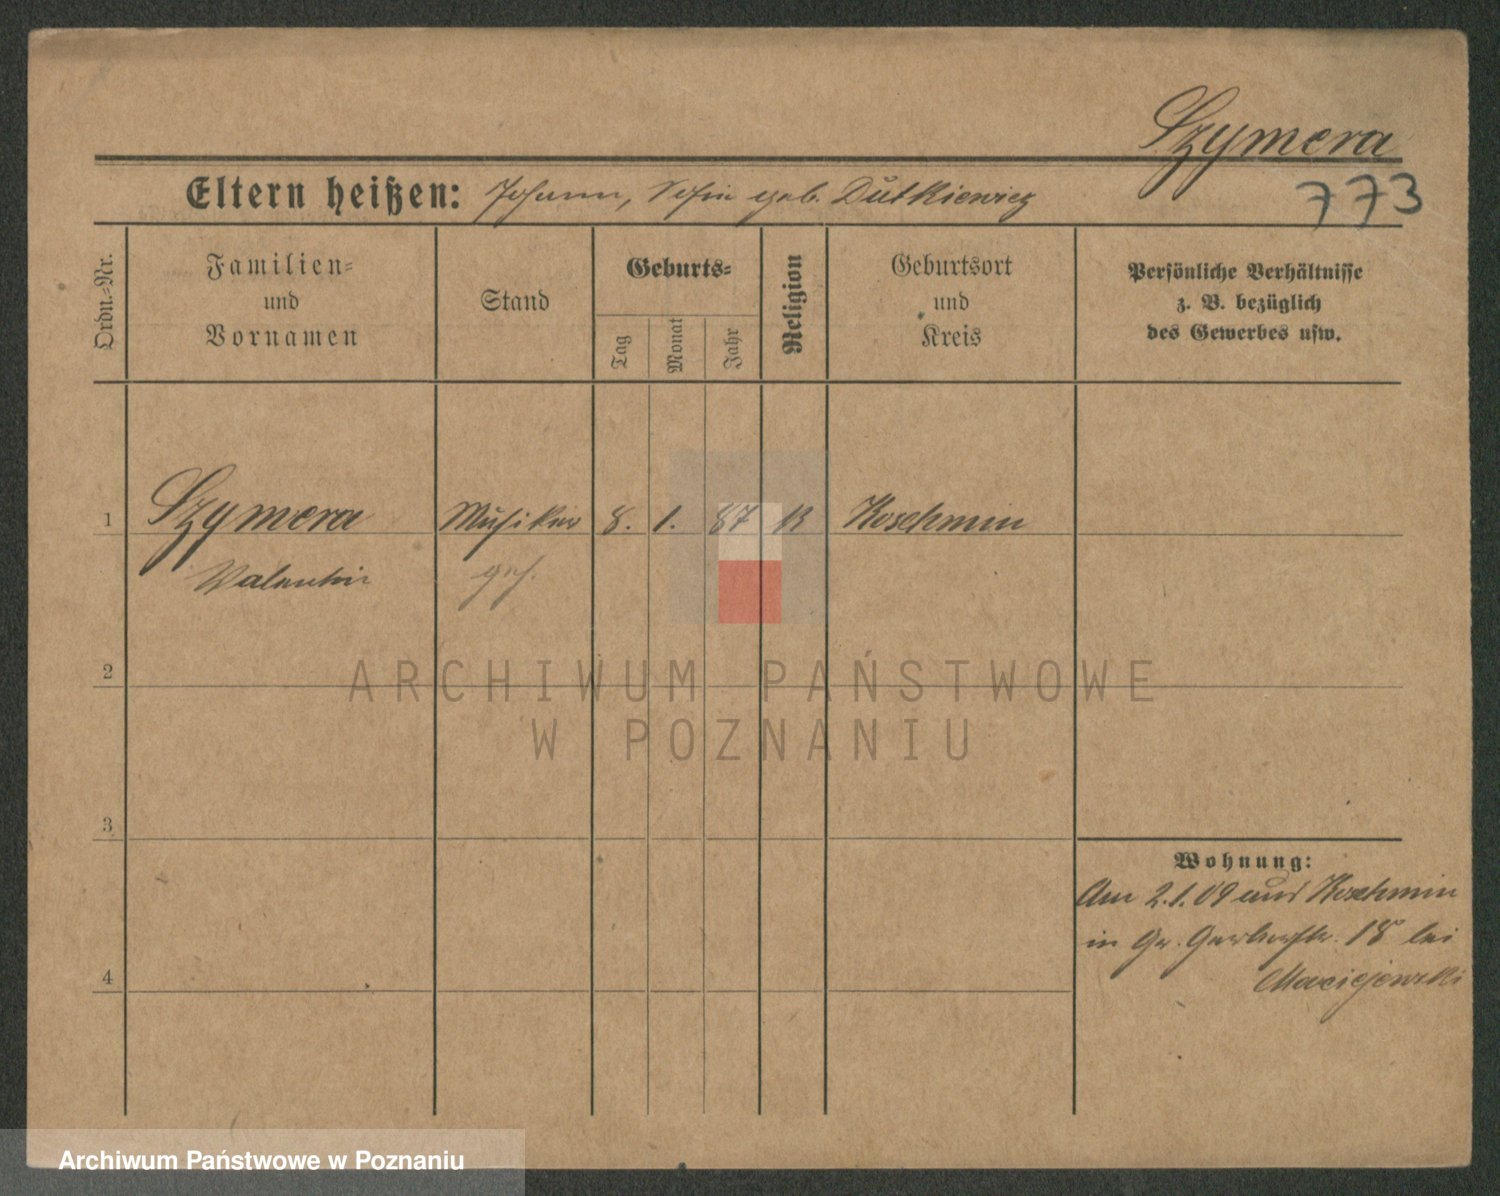 Szymera
Eltern heißen: Johann, Sofie geb. Dutkiewicz
773
Ordn.-Nr.
Familien-
und
Vornamen
Stand
Geburts-
Tag
Monat
Jahr
Religion
Geburtsort
und
Kreis
Persönliche Verhältnisse
z. B. bezüglich
des Gewerbes usw.
1 Szymera Musiker 8. 1. 87 K Koschmin
Valentin
2
3
4
Wohnung:
Am 2.1.09 aus Koschmin
in Gr. Gerberstr. 18 bei
Maciejewski
ARCHIWUM PAŃSTWOWE
W POZNANIU
Archiwum Państwowe w Poznaniu